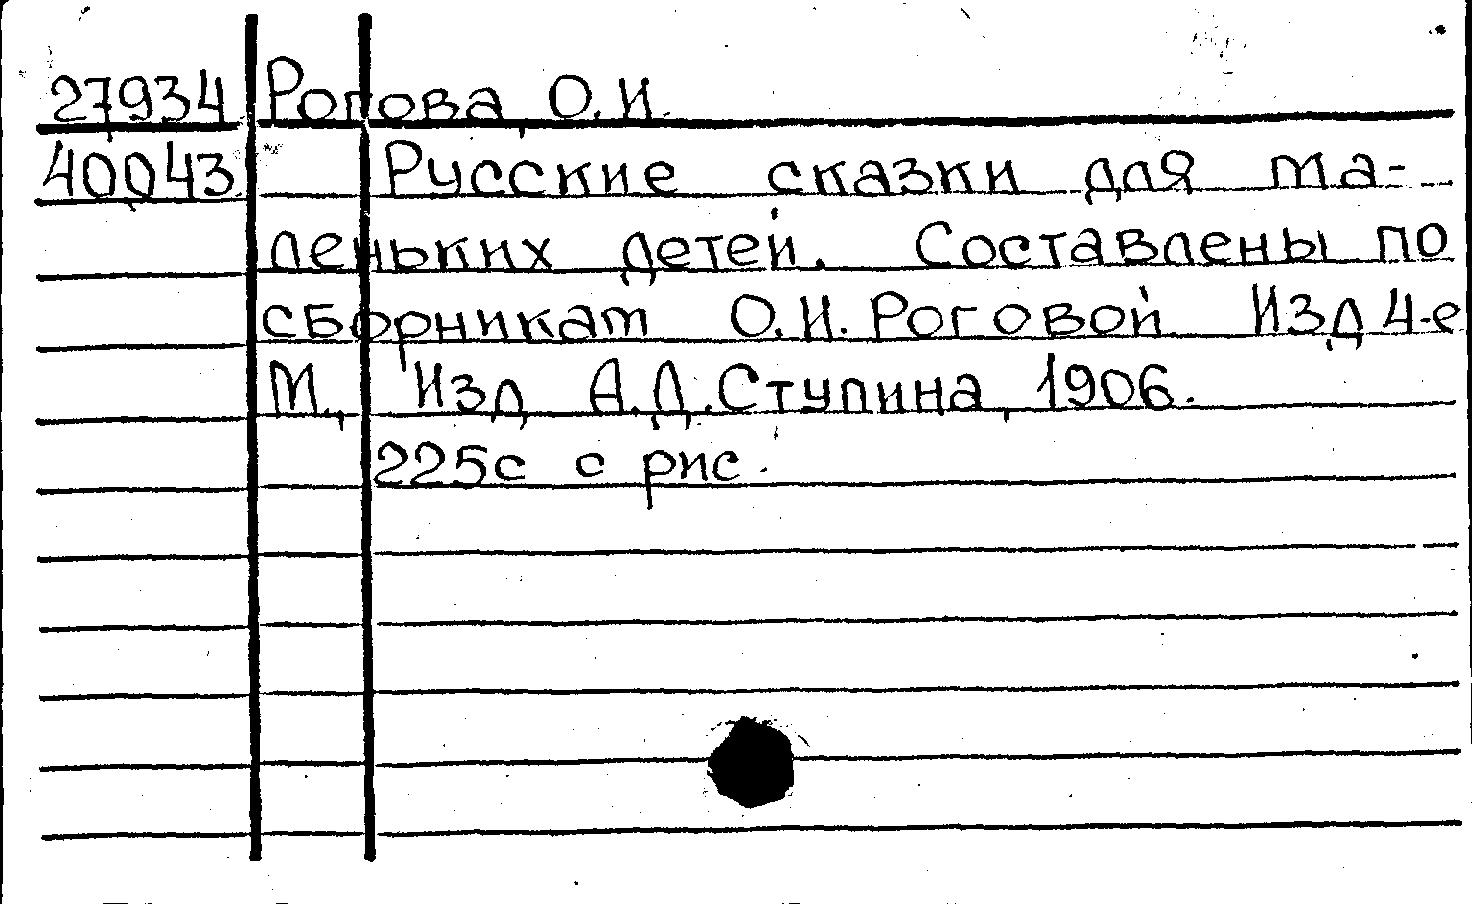 27934 Рогова, О.И.
40043 Русские сказки для ма-
леньких детей. Составлены по
сборникам О.И. Роговой. Изд 4-е
М., Изд. А.Д. Ступина, 1906.
225с с рис.